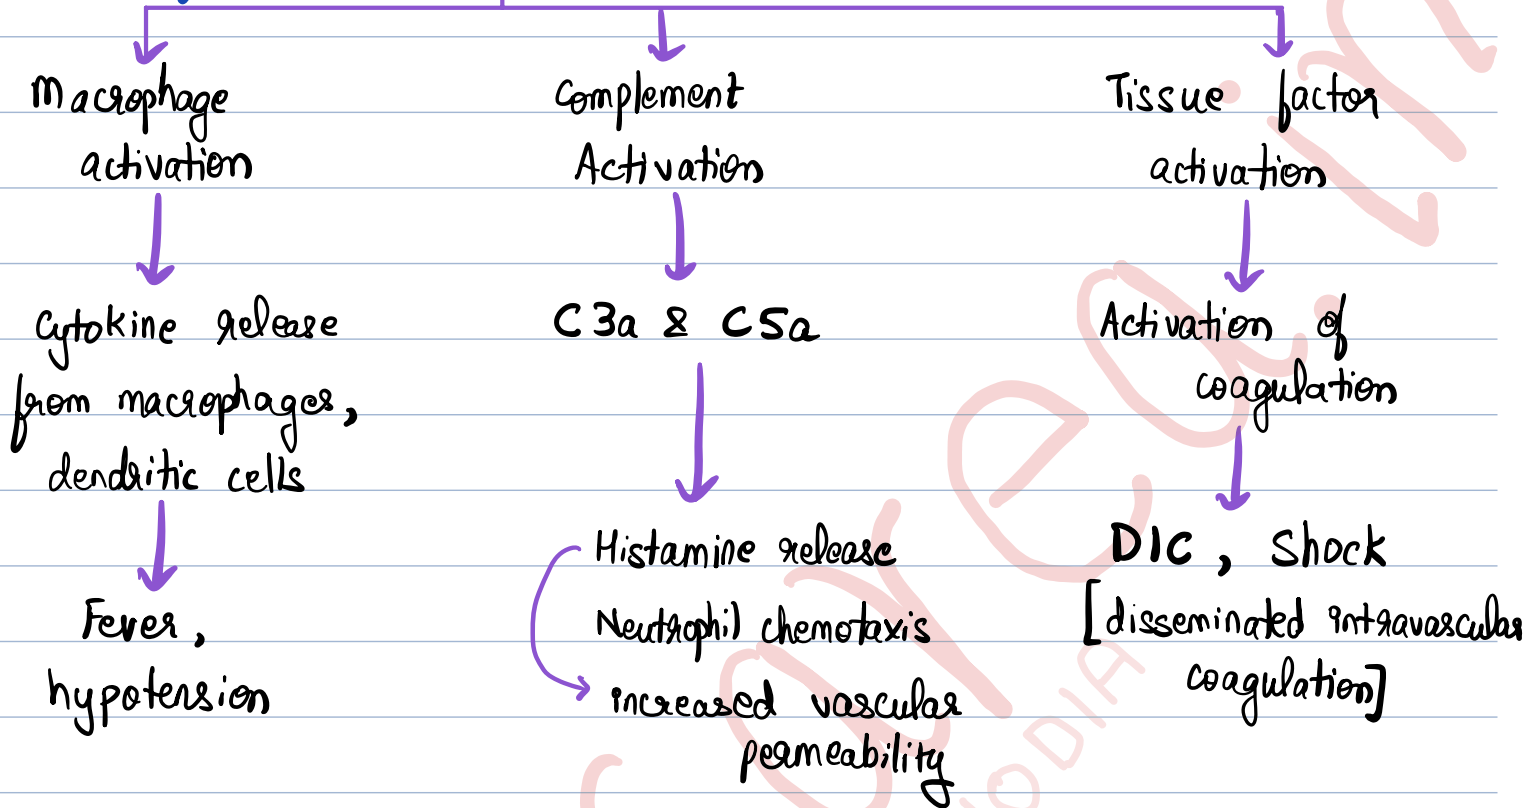 Macrophage
activation
Cytokine release
from macrophages,
dendritic cells
Fever,
hypotension
Complement
Activation
C3a & C5a
Histamine release
Neutrophil chemotaxis
increased vascular
permeability
Tissue factor
activation
Activation of
coagulation
DIC, Shock
[disseminated intravascular
coagulation]